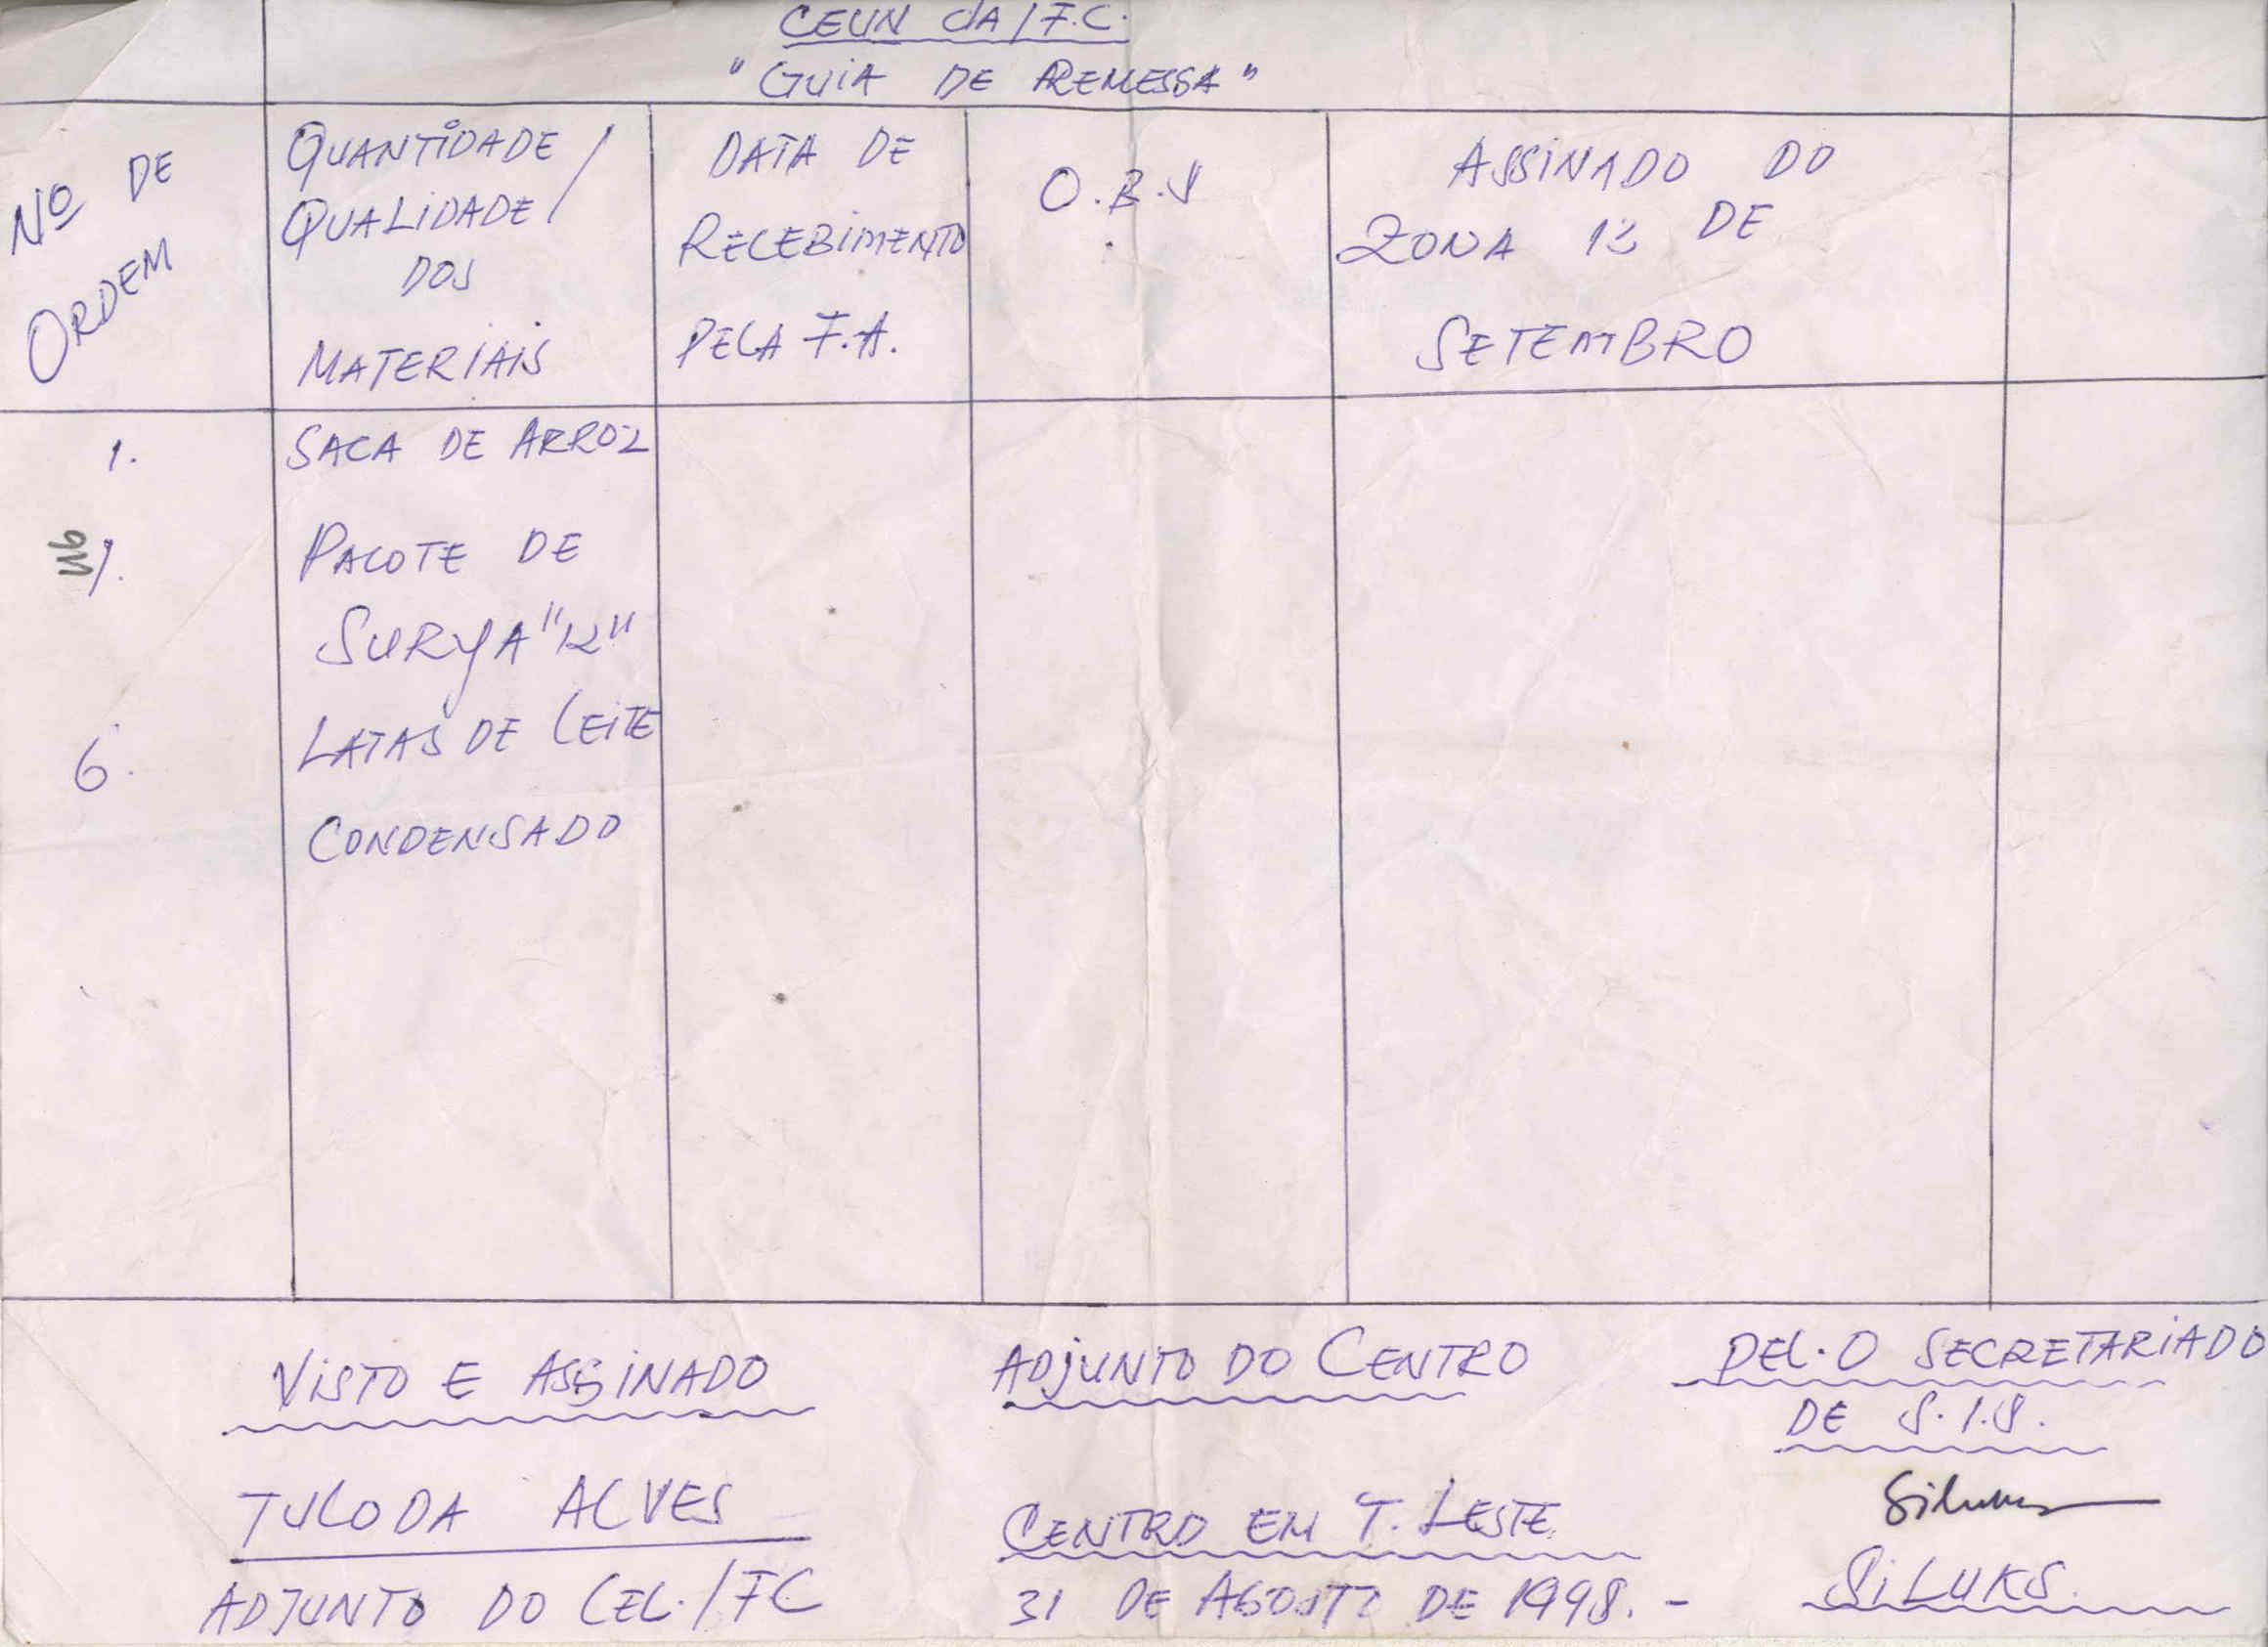 CEUN da/F.C.
"GUIA DE REMESSA"
Nº DE
ORDEM
QUANTIDADE /
QUALIDADE
DOS
MATERIAIS
DATA DE
RECEBIMENTO
PELA F.A.
O.B.S
ASSINADO DO
ZONA 12 DE
SETEMBRO
1. SACA DE ARROZ
1. PACOTE DE
SURYA "12"
6. LATAS DE LEITE
CONDENSADO
VISTO E ASSINADO
TULODA ALVES
ADJUNTO DO CEL./FC
ADJUNTO DO CENTRO
CENTRO EM T. LESTE
31 DE AGOSTO DE 1998.-
PEL.O SECRETARIADO
DE S.I.S.
SILUKS